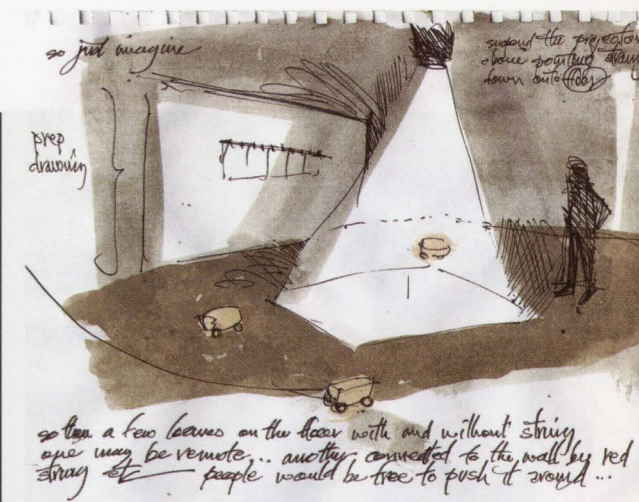 so just imagine
suspend the projector
above pointing straight
down onto floor
prep
drawing
so then a few leaves on the floor with and without string
one may be remote... another connected to the wall by red
string etc people would be free to push it around...